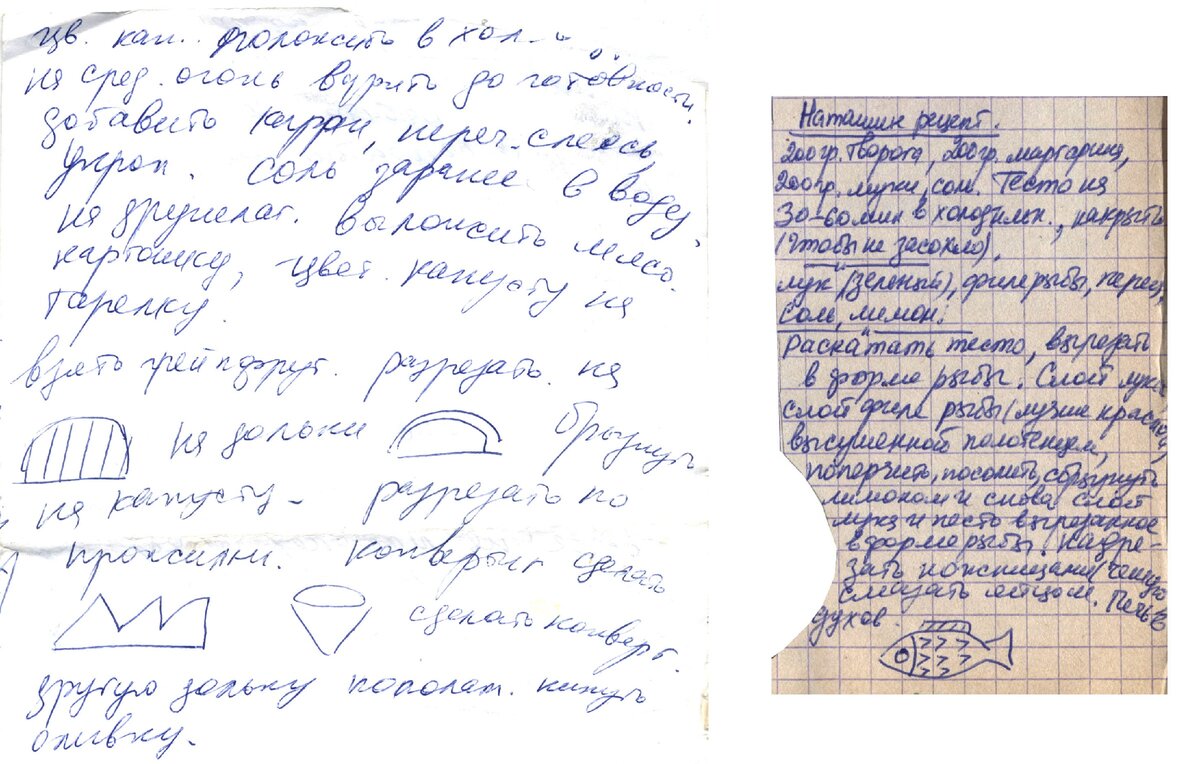 цв. кап.. положить в хол.
на сред. огонь варить до готовности.
добавить карри, переч. смесь,
укроп. Соль заранее в воду,
не желат. Выложить мясо.
картошку, цвет. капусту на
тарелку.
взять грейпфрут. разрезать на
на дольки брызнуть
на капусту. разрезать по
прожилки. конвертик сделать
сделать конверт.
другую дольку пополам. кинуть
оливку.
Наташин рецепт.
200гр. творога, 200гр. маргарина,
200гр. муки, соль. Тесто на
30-60 мин в холодильн., накрыть
(чтобы не засохло),
лук (зеленый), филе рыбы, перец,
соль, лимон.
Раскатать тесто, вырезать
в форме рыбы. Слой лука
слой филе рыбы (лучше красной,
высушенной полотенцем,
поперчить, посолить, сбрызнуть
лимоном и снова слой
лука и тесто вырезанное
в форме рыбы. Надре-
зать ножницами чешую
смазать яйцом. Печь в
духов.